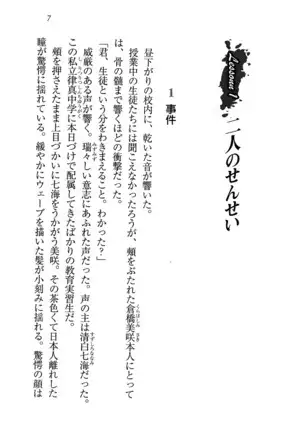 7
Lesson 1
二人のせんせい
1 事件
昼下がりの校内に、乾いた音が響いた。
授業中の生徒には聞こえなかったろうが、頰をぶたれた倉橋美咲本人にとって
は、骨の髄まで響くほどの衝撃だった。
「君、生徒という分をわきまえること。わかった?」
威厳のある声が響く。瑞々しい意志にあふれた声だった。声の主は清白七海。
この私立律真中学に本日づけで配属してきたばかりの教育実習生だった。
頰を押さえたまま上目づかいに七海をうかがう美咲。その茶色くて日本人離れした
瞳が驚愕に揺れている。緩やかにウェーブを描いた髪が小刻みに揺れる。驚愕の顔は